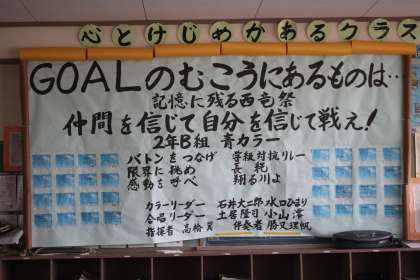 心とけじめがあるクラス
GOALのむこうにあるものは…
記憶に残る西竜祭
仲間を信じて自分を信じて戦え!
2年B組 青カラー
バトンをつなげ 学級対抗リレー
限界に挑め 長縄
感動を呼べ 翔る川よ
カラーリーダー 石井大二郎 水口ひまり
合唱リーダー 土居隆司 小山澪
指揮者 高橋翼 伴奏者 勝又理帆